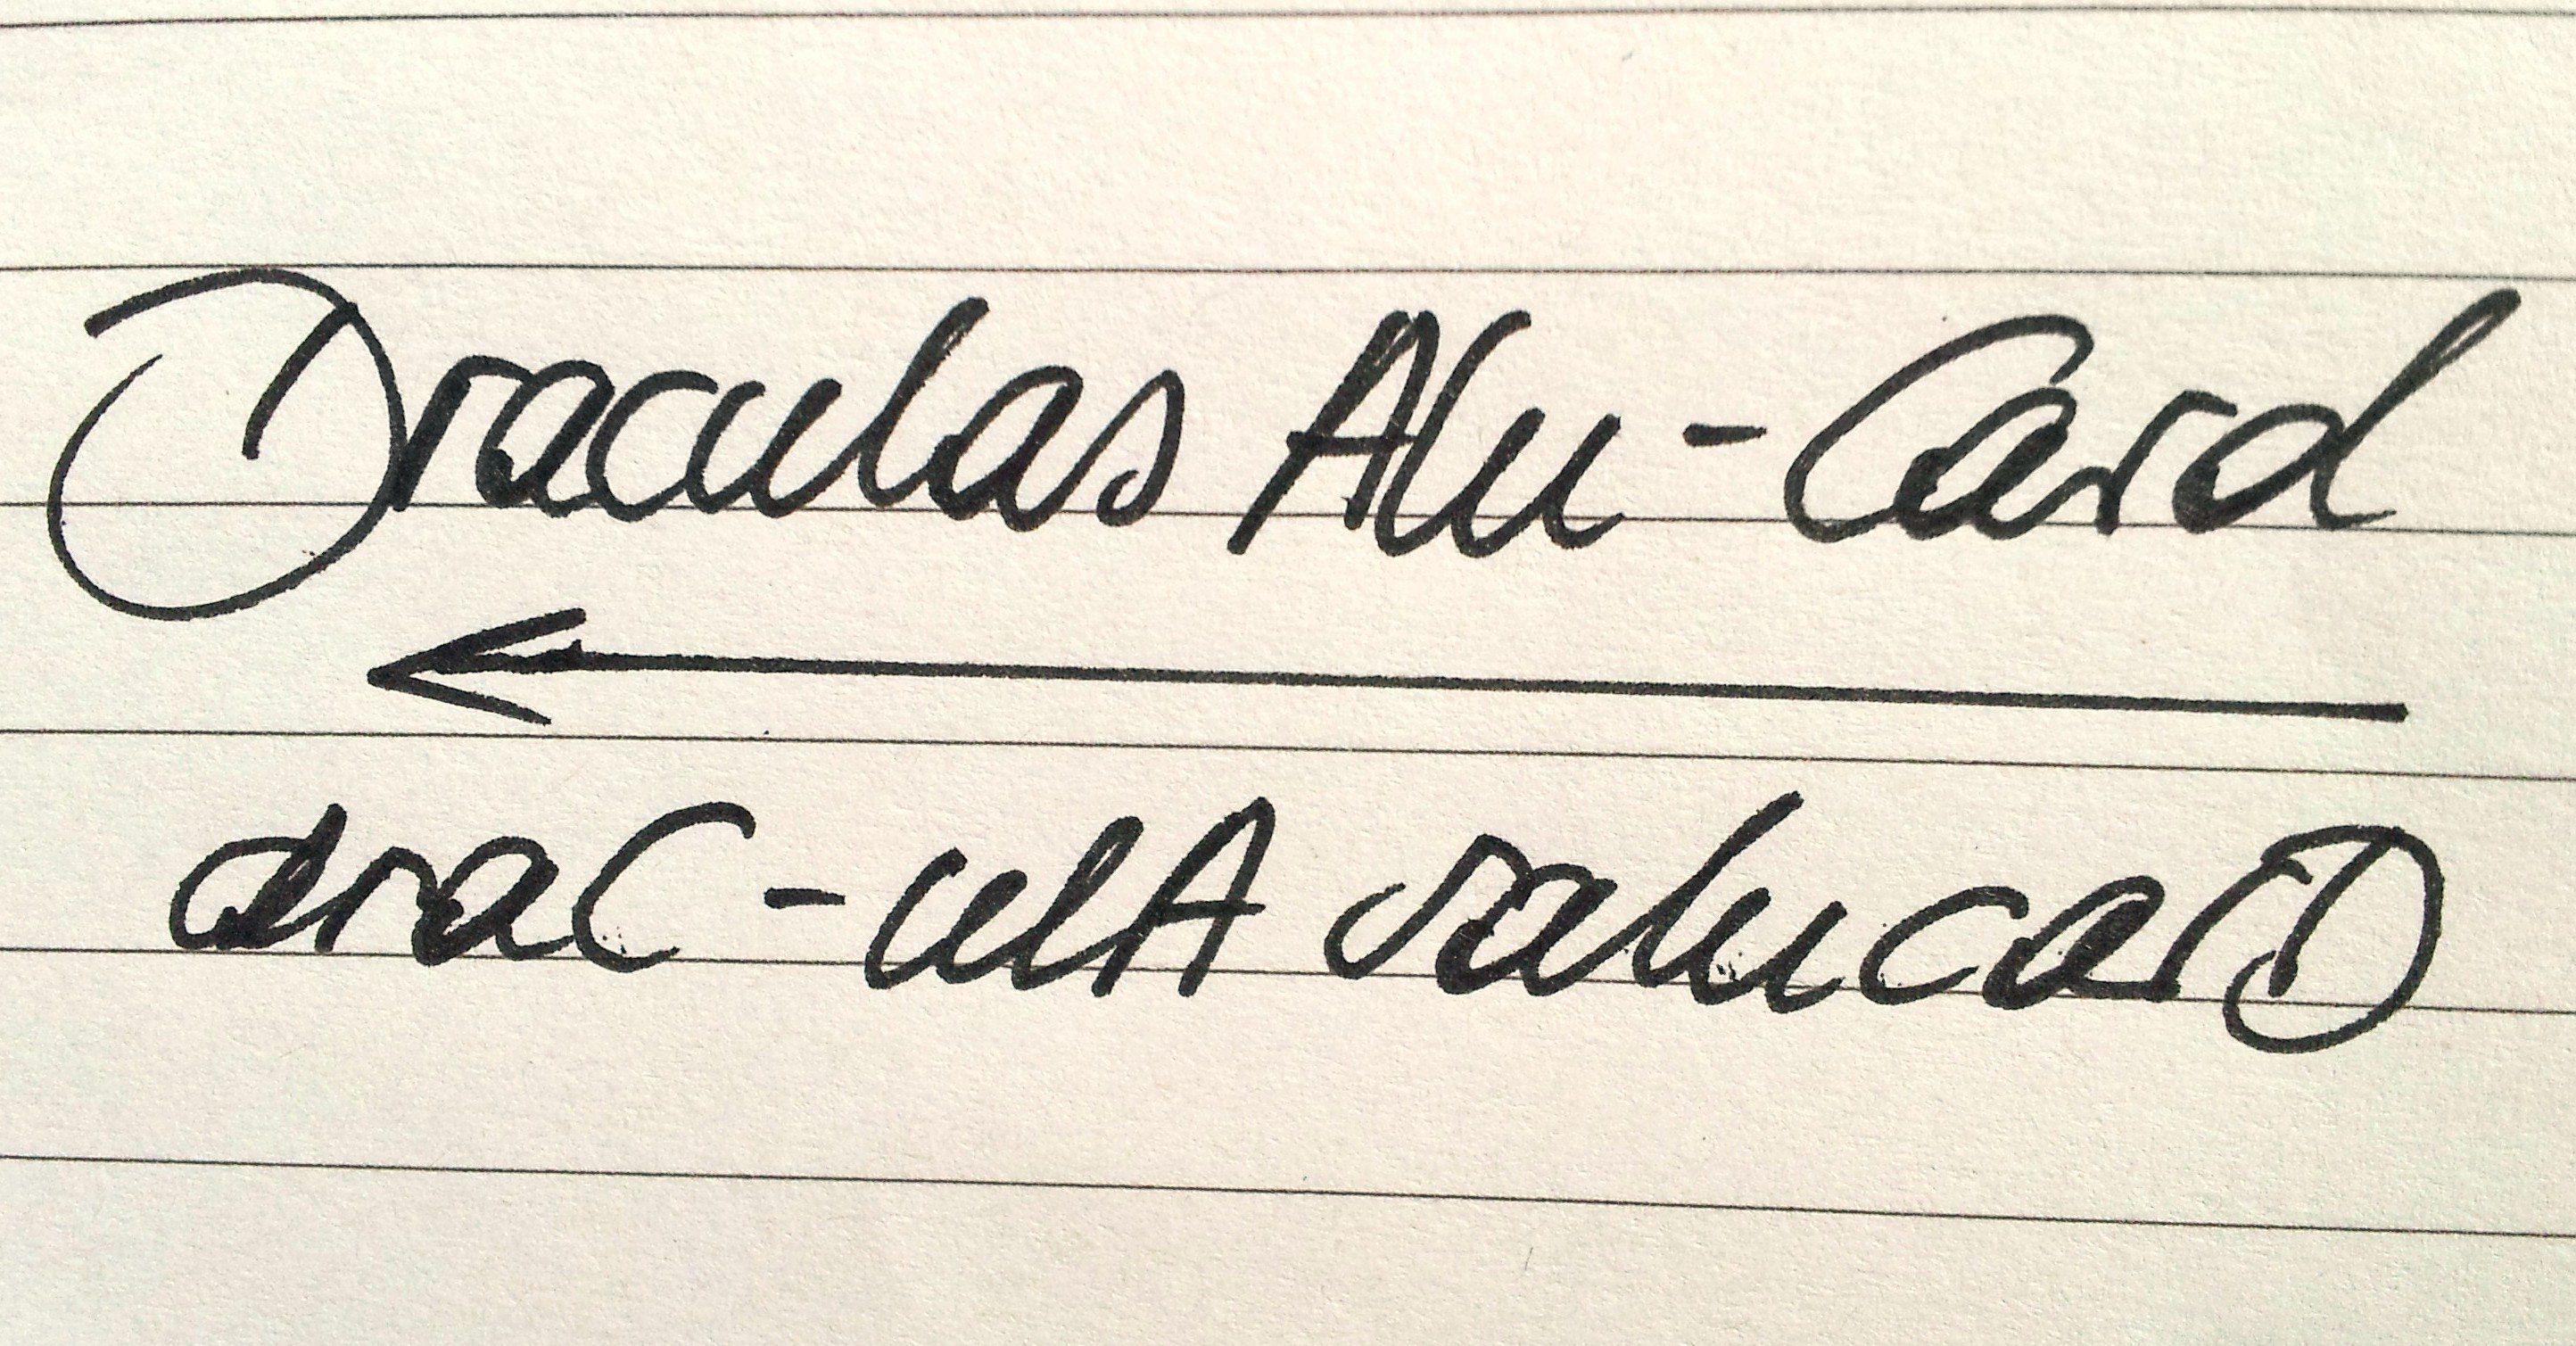 Draculas Alu-Card
draC-ulA salucarD